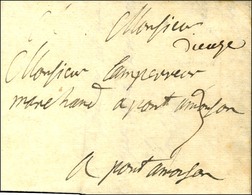 Monsieur
Dieuze
Monsieur Lampereur
marchand a pont amouson
a pont amouson